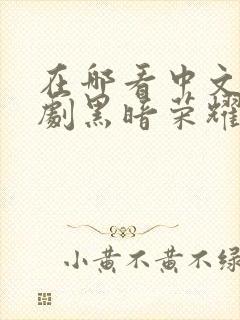 在哪看中文
劇黑暗荣耀
小黄不黄不绿